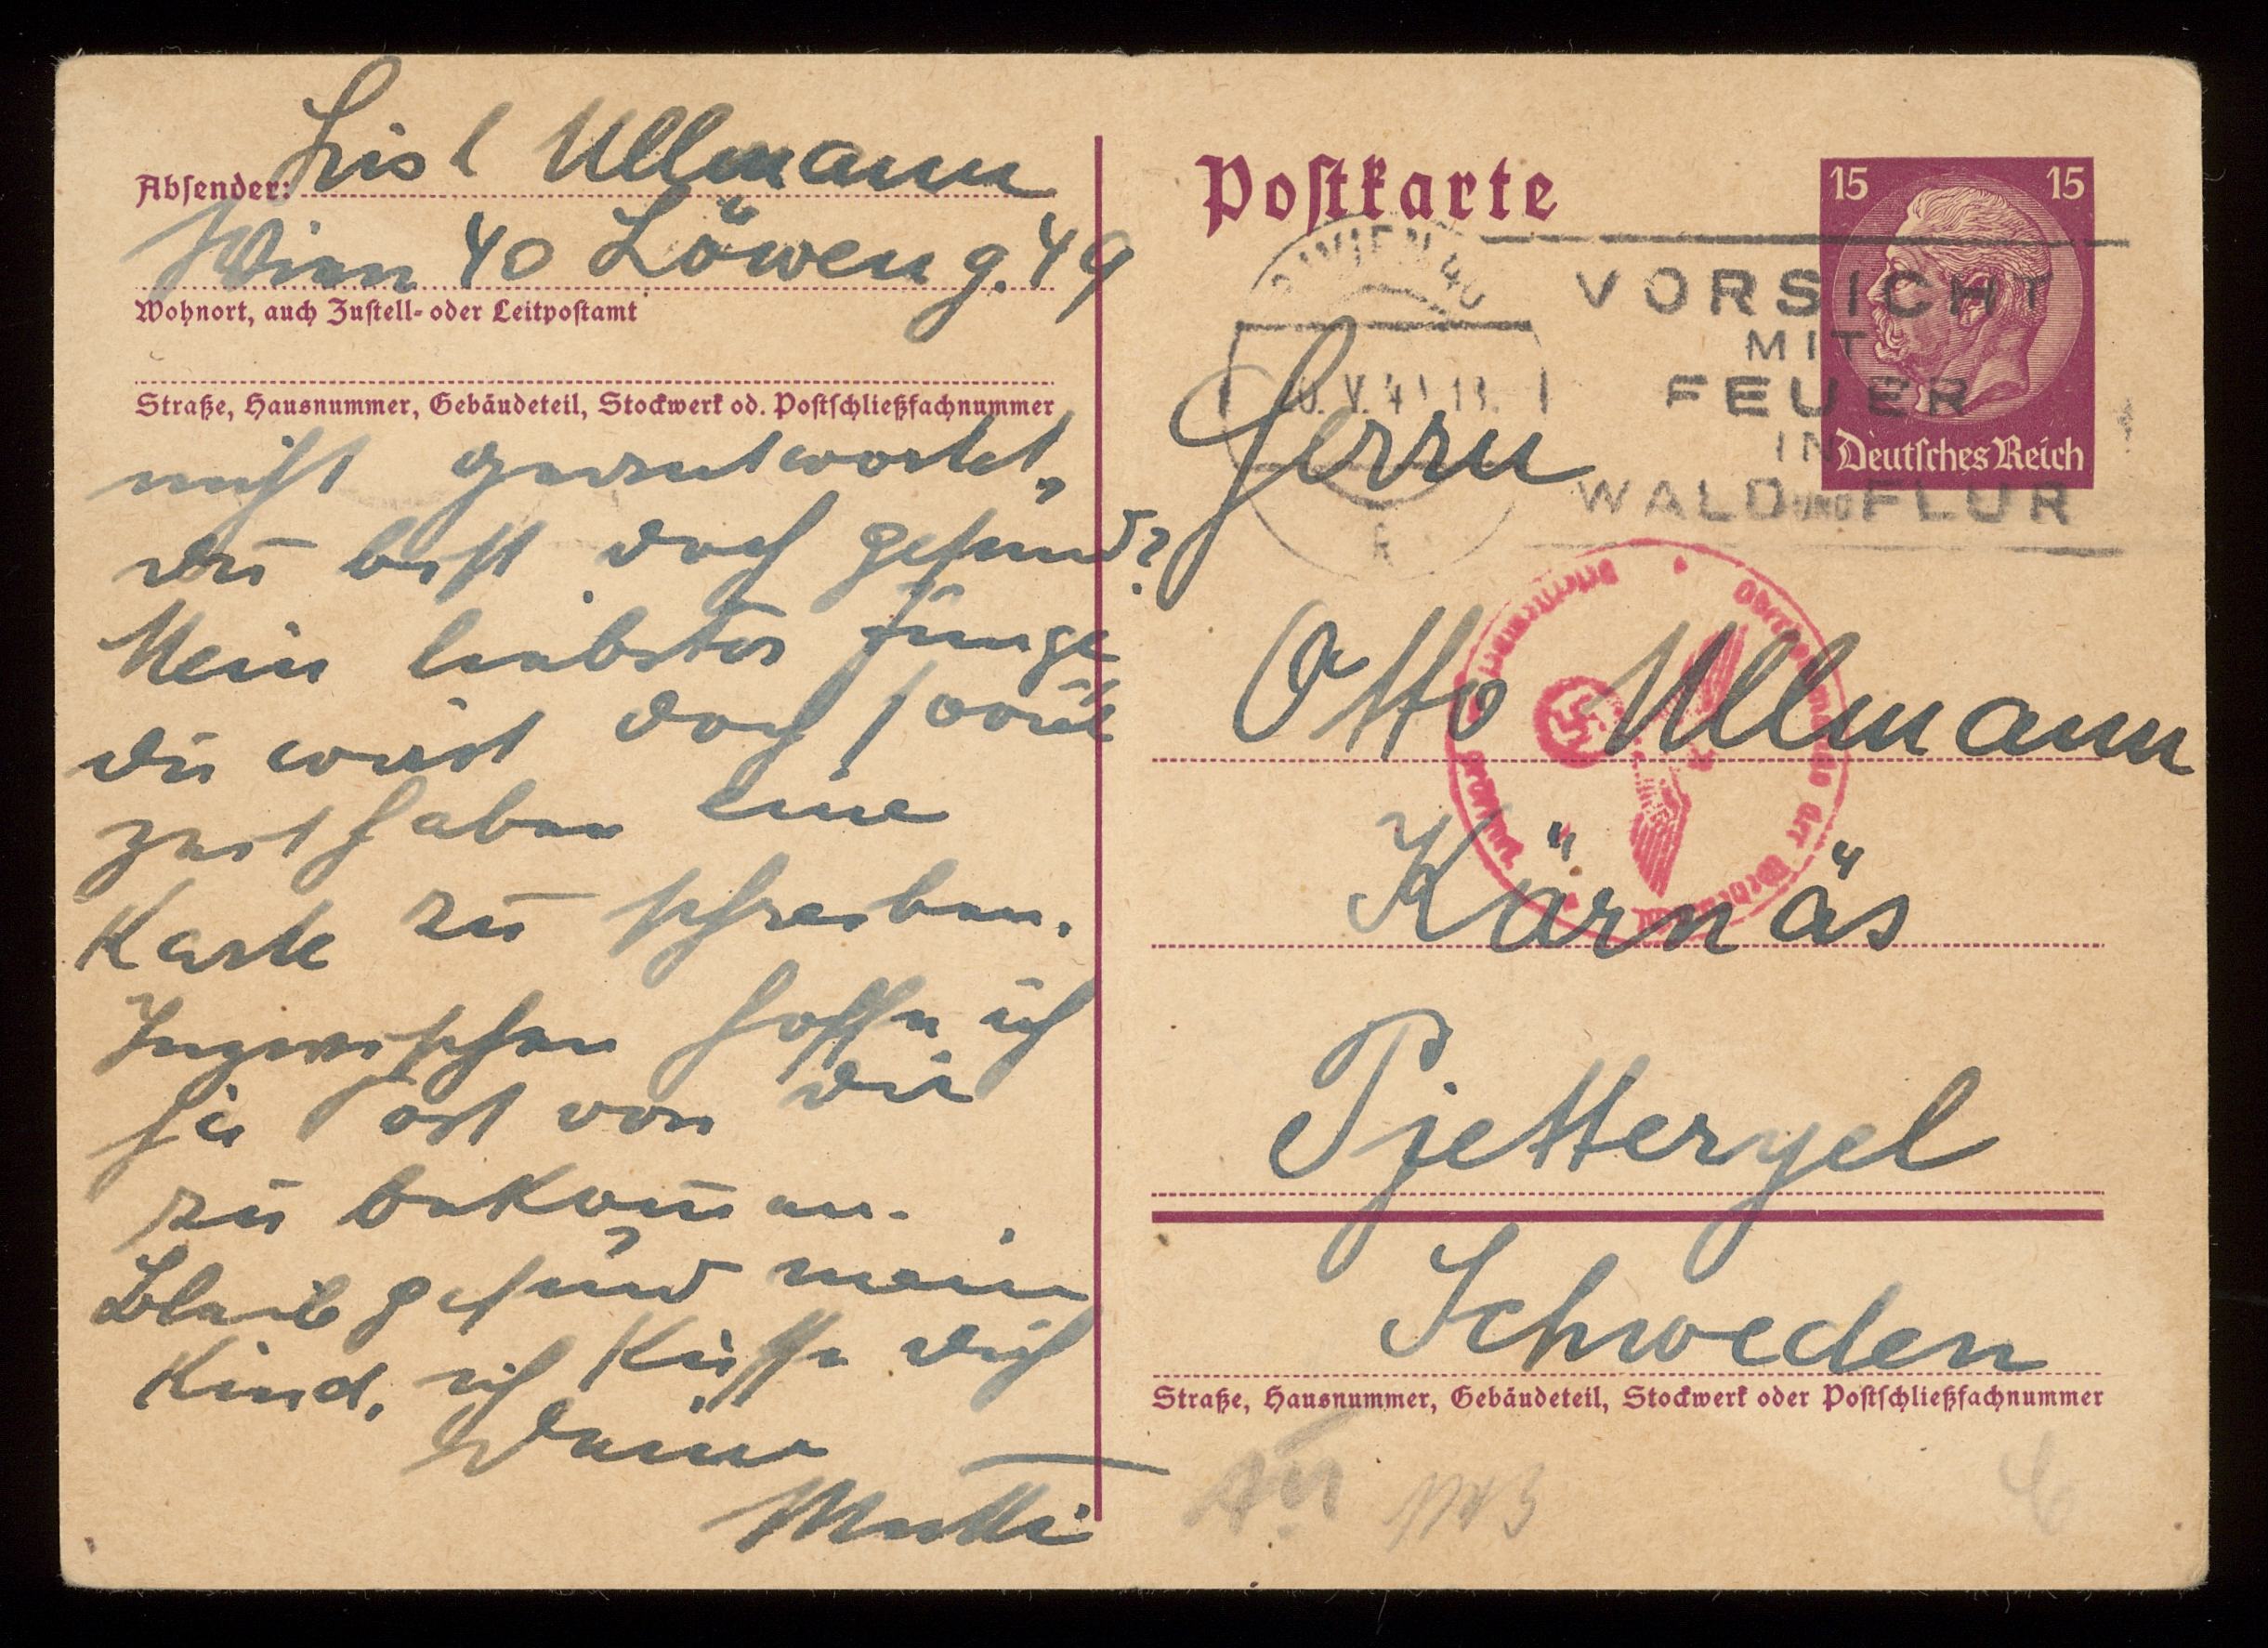 Lisl Ullmann
Absender:
Wien 40 Löweng. 49
Wohnort, auch Zustell- oder Leitpostamt
Straße, Hausnummer, Gebäudeteil, Stockwerk od. Postschließfachnummer
nicht geantwortet,
du bist doch gesund?
Mein liebster Junge
du wirst doch soviel
Zeit haben eine
Karte zu schreiben.
Inzwischen hoffe ich
ja Post von dir
zu bekom̄en.
Bleib gesund mein
Kind, ich küsse dich
Deine
Mutti
Postkarte
15 15
Deutsches Reich
WIEN 40
VORSICHT
MIT
FEUER
IN
WALD UND FLUR
Herrn
Otto Ullmann
Kärnäs
Pjetteryel
Schweden
Straße, Hausnummer, Gebäudeteil, Stockwerk oder Postschließfachnummer